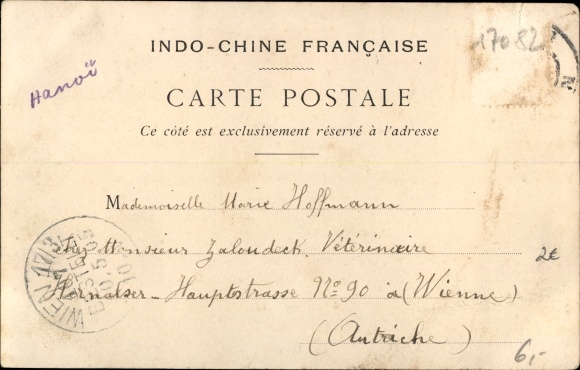 17082
INDO-CHINE FRANÇAISE
Hanoï
CARTE POSTALE
Ce côté est exclusivement réservé à l'adresse
Mademoiselle Marie Hoffmann
Monsieur Zaloudeck. Vétérinaire
2€
Hernalser-Hauptstrasse No 90 à (Wienne)
(Autriche)
6,-
WIEN 17/3